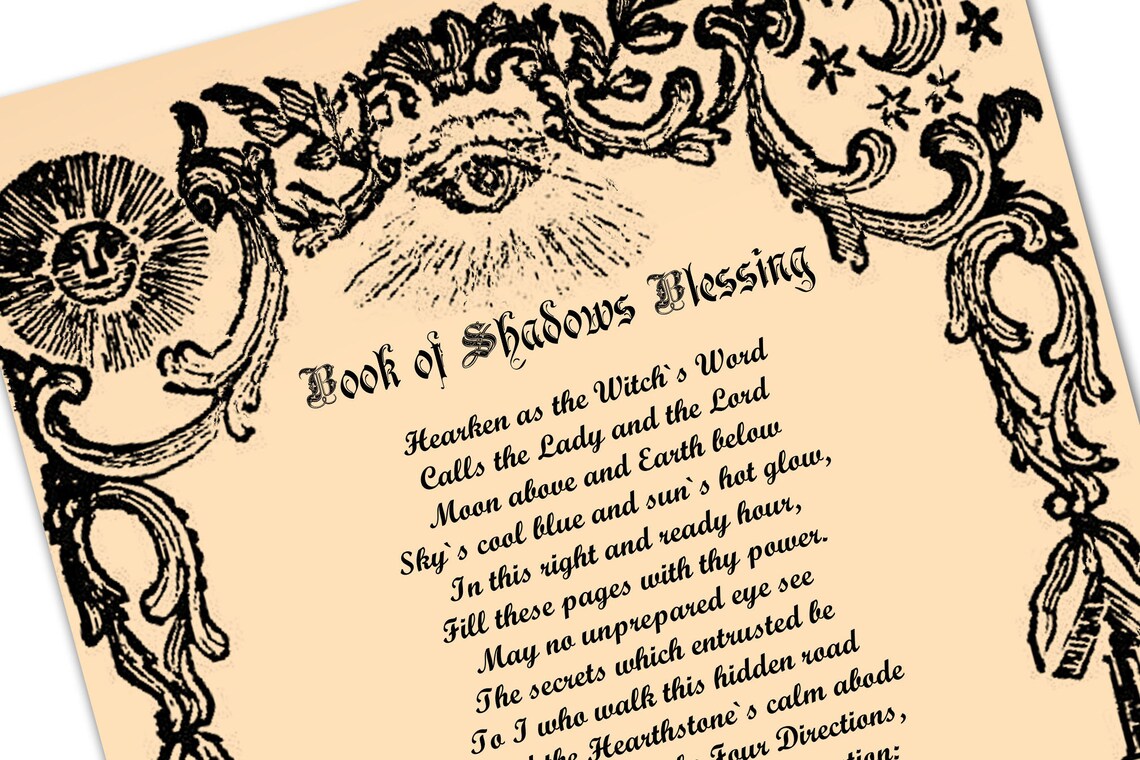 Book of Shadows Blessing
Hearken as the Witch`s Word
Calls the Lady and the Lord
Moon above and Earth below
Sky`s cool blue and sun`s hot glow,
In this right and ready hour,
Fill these pages with thy power.
May no unprepared eye see
The secrets which entrusted be
To I who walk this hidden road
the Hearthstone`s calm abode
Four Directions,